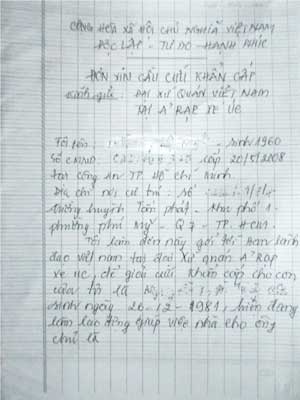 CỘNG HÒA XÃ HỘI CHỦ NGHĨA VIỆT NAM
ĐỘC LẬP - TỰ DO - HẠNH PHÚC
ĐƠN XIN CẦU CỨU KHẨN CẤP
Kính gửi: ĐẠI SỨ QUÁN VIỆT NAM
TẠI Ả RẬP XE ÚC
Tôi tên: sinh 1960
Số CMND: cấp 20/5/2008
tại công an TP. Hồ Chí Minh.
Địa chỉ nơi cư trú: số
đường huỳnh tấn phát - khu phố 1 -
phường phú Mỹ - Q 7 - TP. HCM.
Tôi làm đơn này gởi tới Ban lãnh
đạo việt nam tại Đại Sứ quán Ả Rạp
xe úc, để giải cứu khẩn cấp cho con
của tôi là
sinh ngày 26-12-1981, hiện đang
làm lao động giúp việc nhà cho ông
chủ là